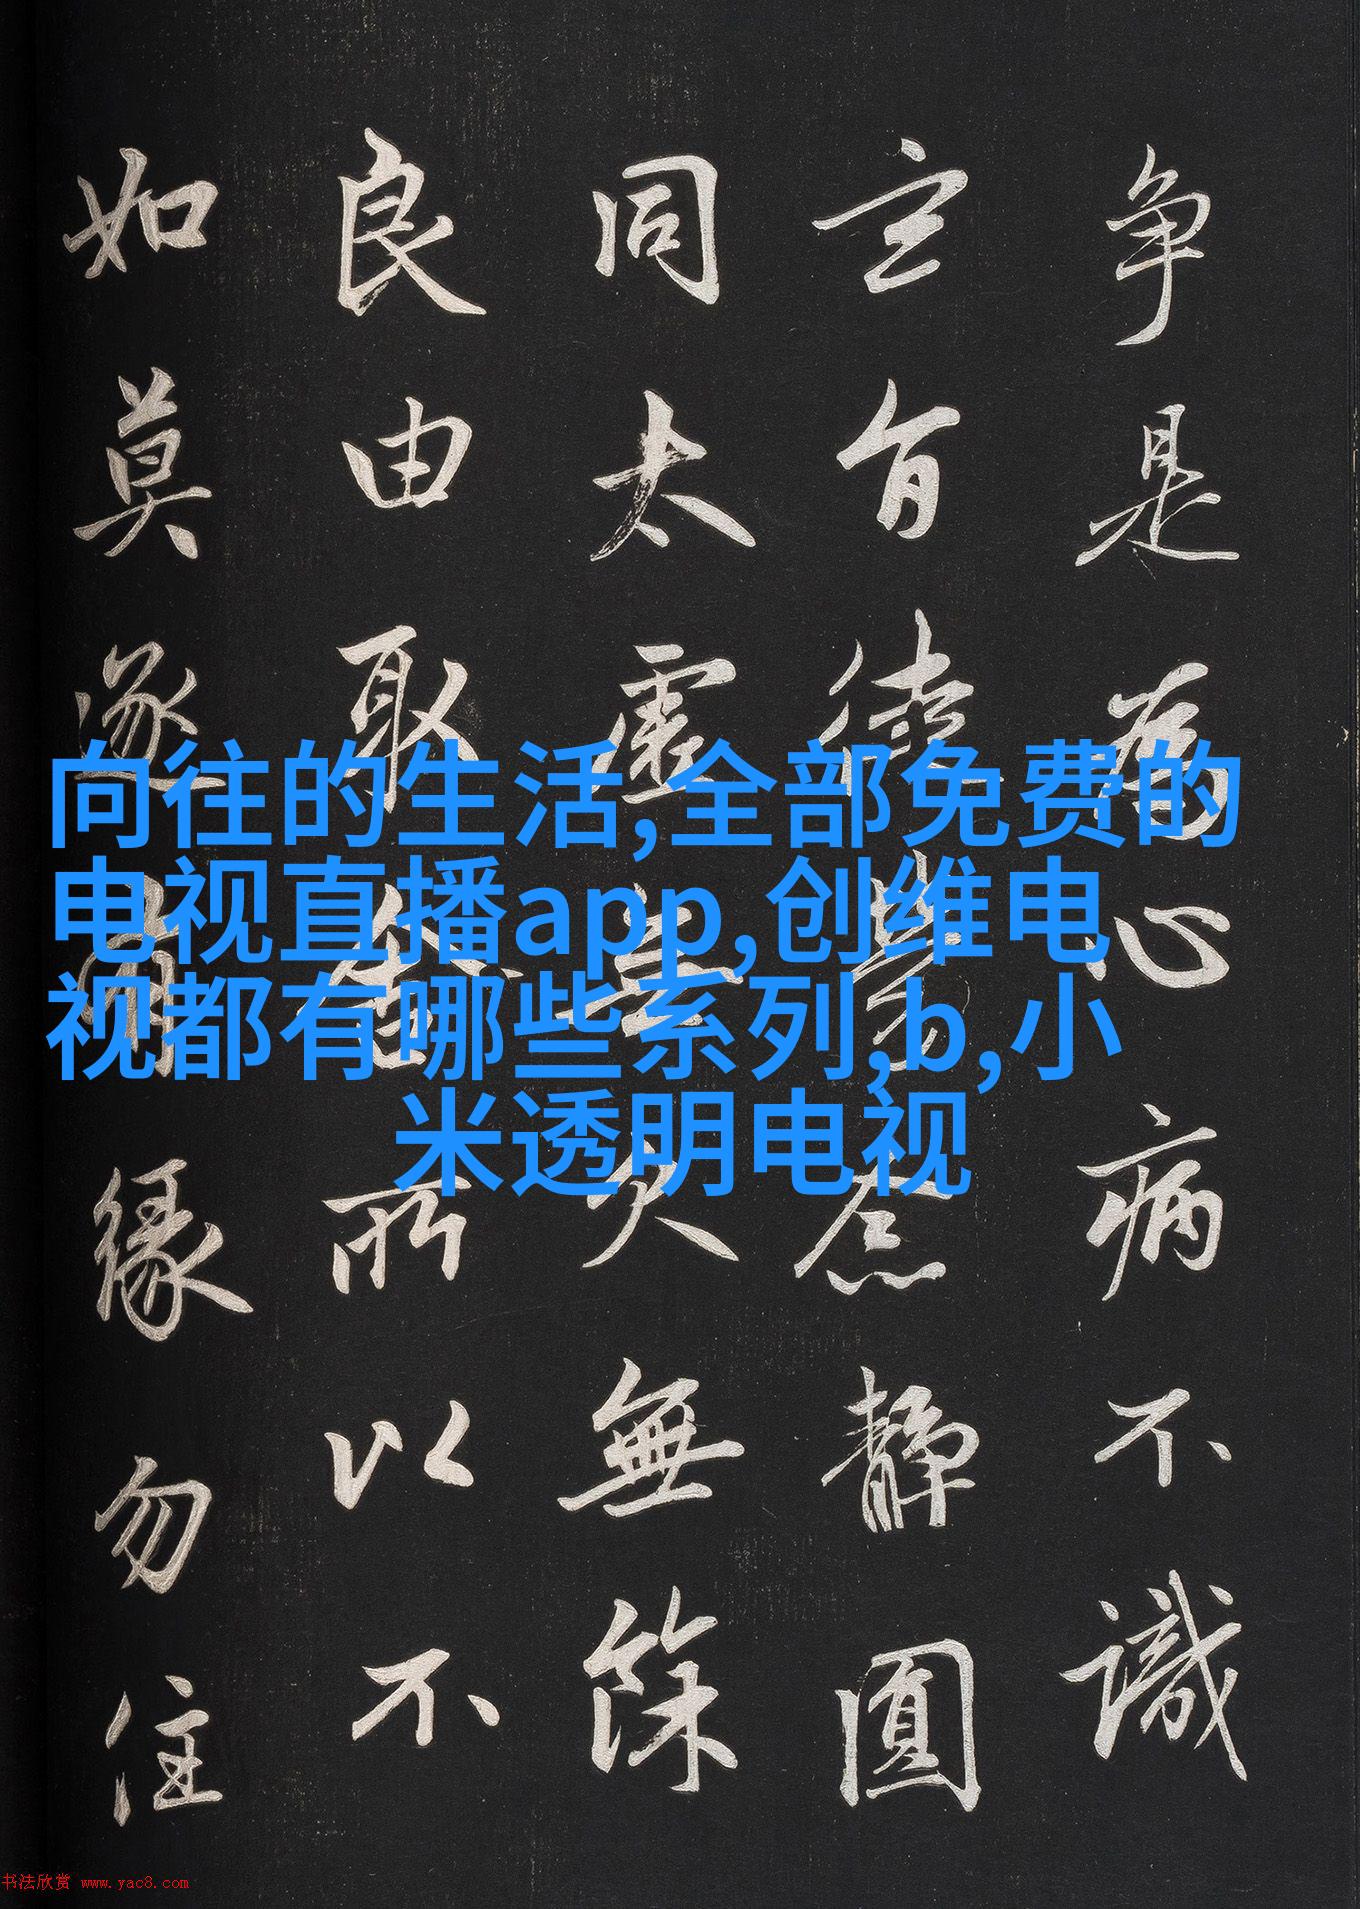 争是為心病不識
玄旨徒勞念靜圓
同太虛無欠無餘
良由取捨所以不
如莫逐有緣勿住
向往的生活,全部免费的
电视直播app,创维电
视都有哪些系列,b,小
米透明电视
书法欣赏 www.yac8.com